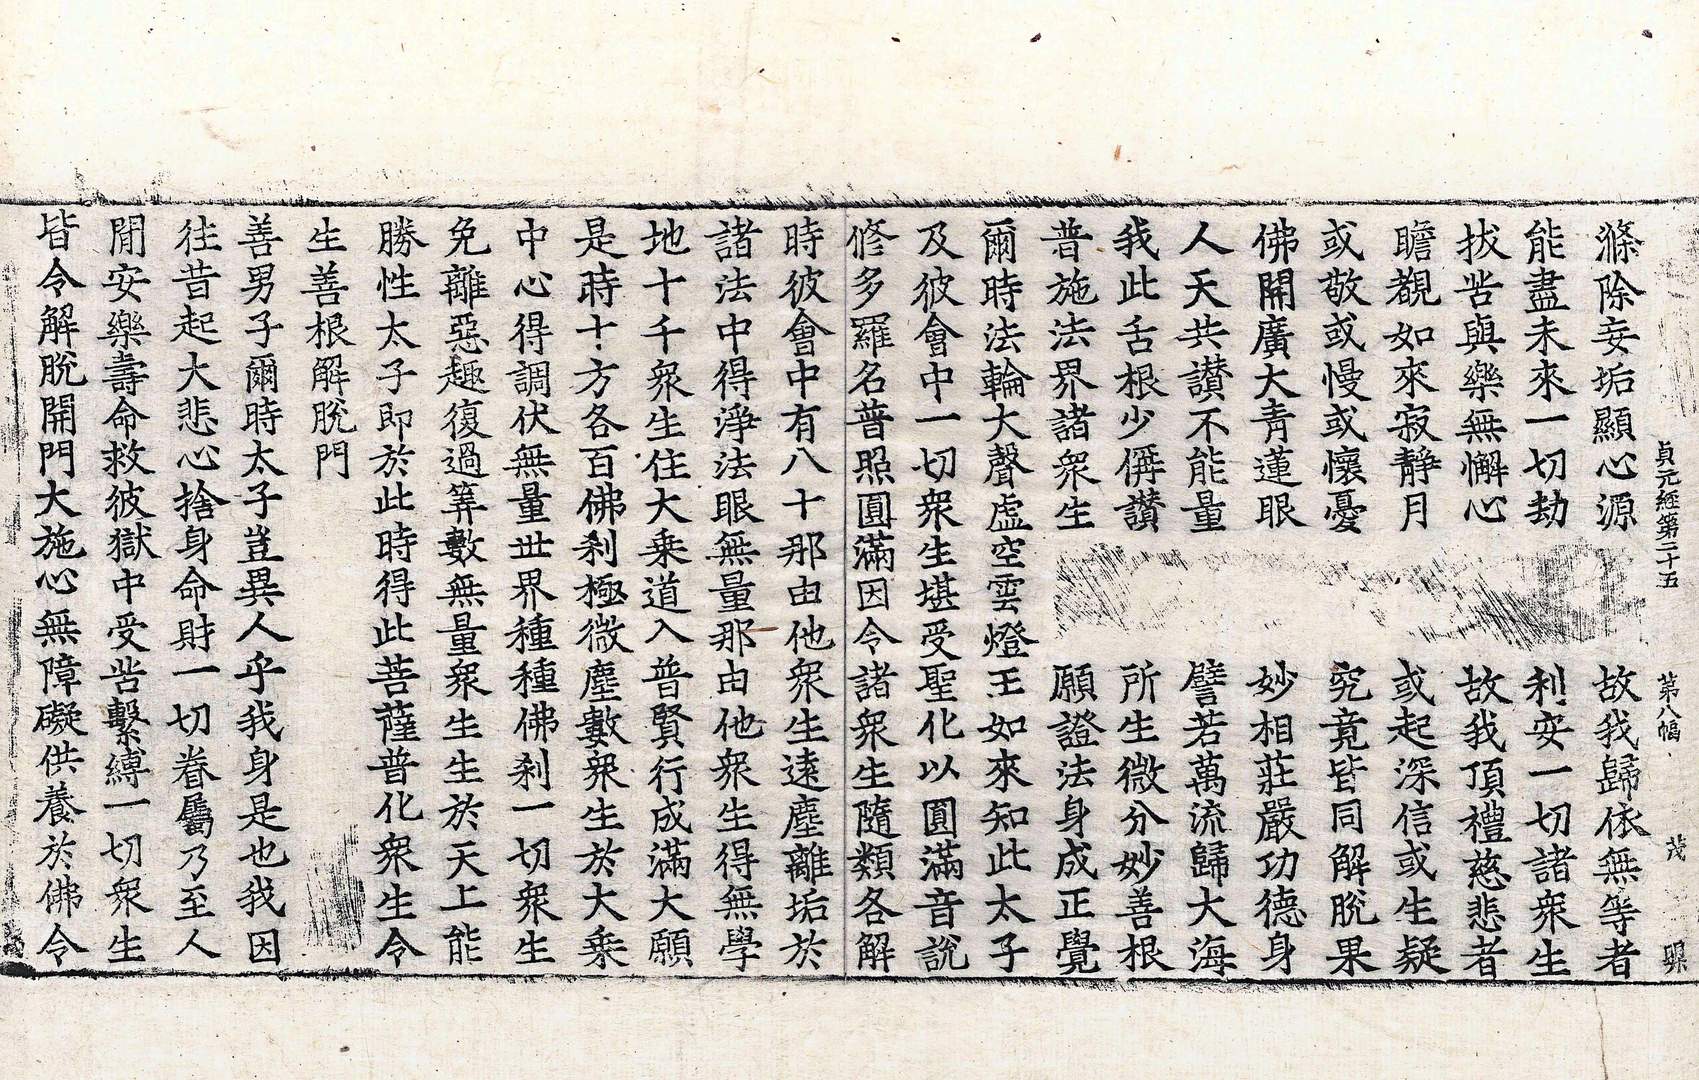 貞元經第二十五 第八幅 茂
滌除妄垢顯心源 故我歸依無等者
能盡未來一切劫 利安一切諸衆生
拔苦與樂無懈心 故我頂禮慈悲者
瞻覩如來寂靜月 或起深信或生疑
或敬或慢或懷憂 究竟皆同解脫果
佛開廣大青蓮眼 妙相莊嚴功德身
人天共讃不能量 譬若萬流歸大海
我此舌根少偁讃 所生微分妙善根
普施法界諸衆生 願證法身成正覺
爾時法輪大聲虛空雲燈王如來知此太子
及彼會中一切衆生堪受聖化以圓滿音說
修多羅名普照圓滿因令諸衆生隨類各解
時彼會中有八十那由他衆生遠塵離垢於
諸法中得淨法眼無量那由他衆生得無學
地十千衆生住大乘道入普賢行成滿大願
是時十方各百佛剎極微塵數衆生於大乘
中心得調伏無量世界種種佛剎一切衆生
免離惡趣復過筭數無量衆生生於天上能
勝性太子即於此時得此菩薩普化衆生令
生善根解脫門
善男子爾時太子豈異人乎我身是也我因
往昔起大悲心捨身命財一切眷屬乃至人
閒安樂壽命救彼獄中受苦繫縛一切衆生
皆令解脫開門大施心無障礙供養於佛令